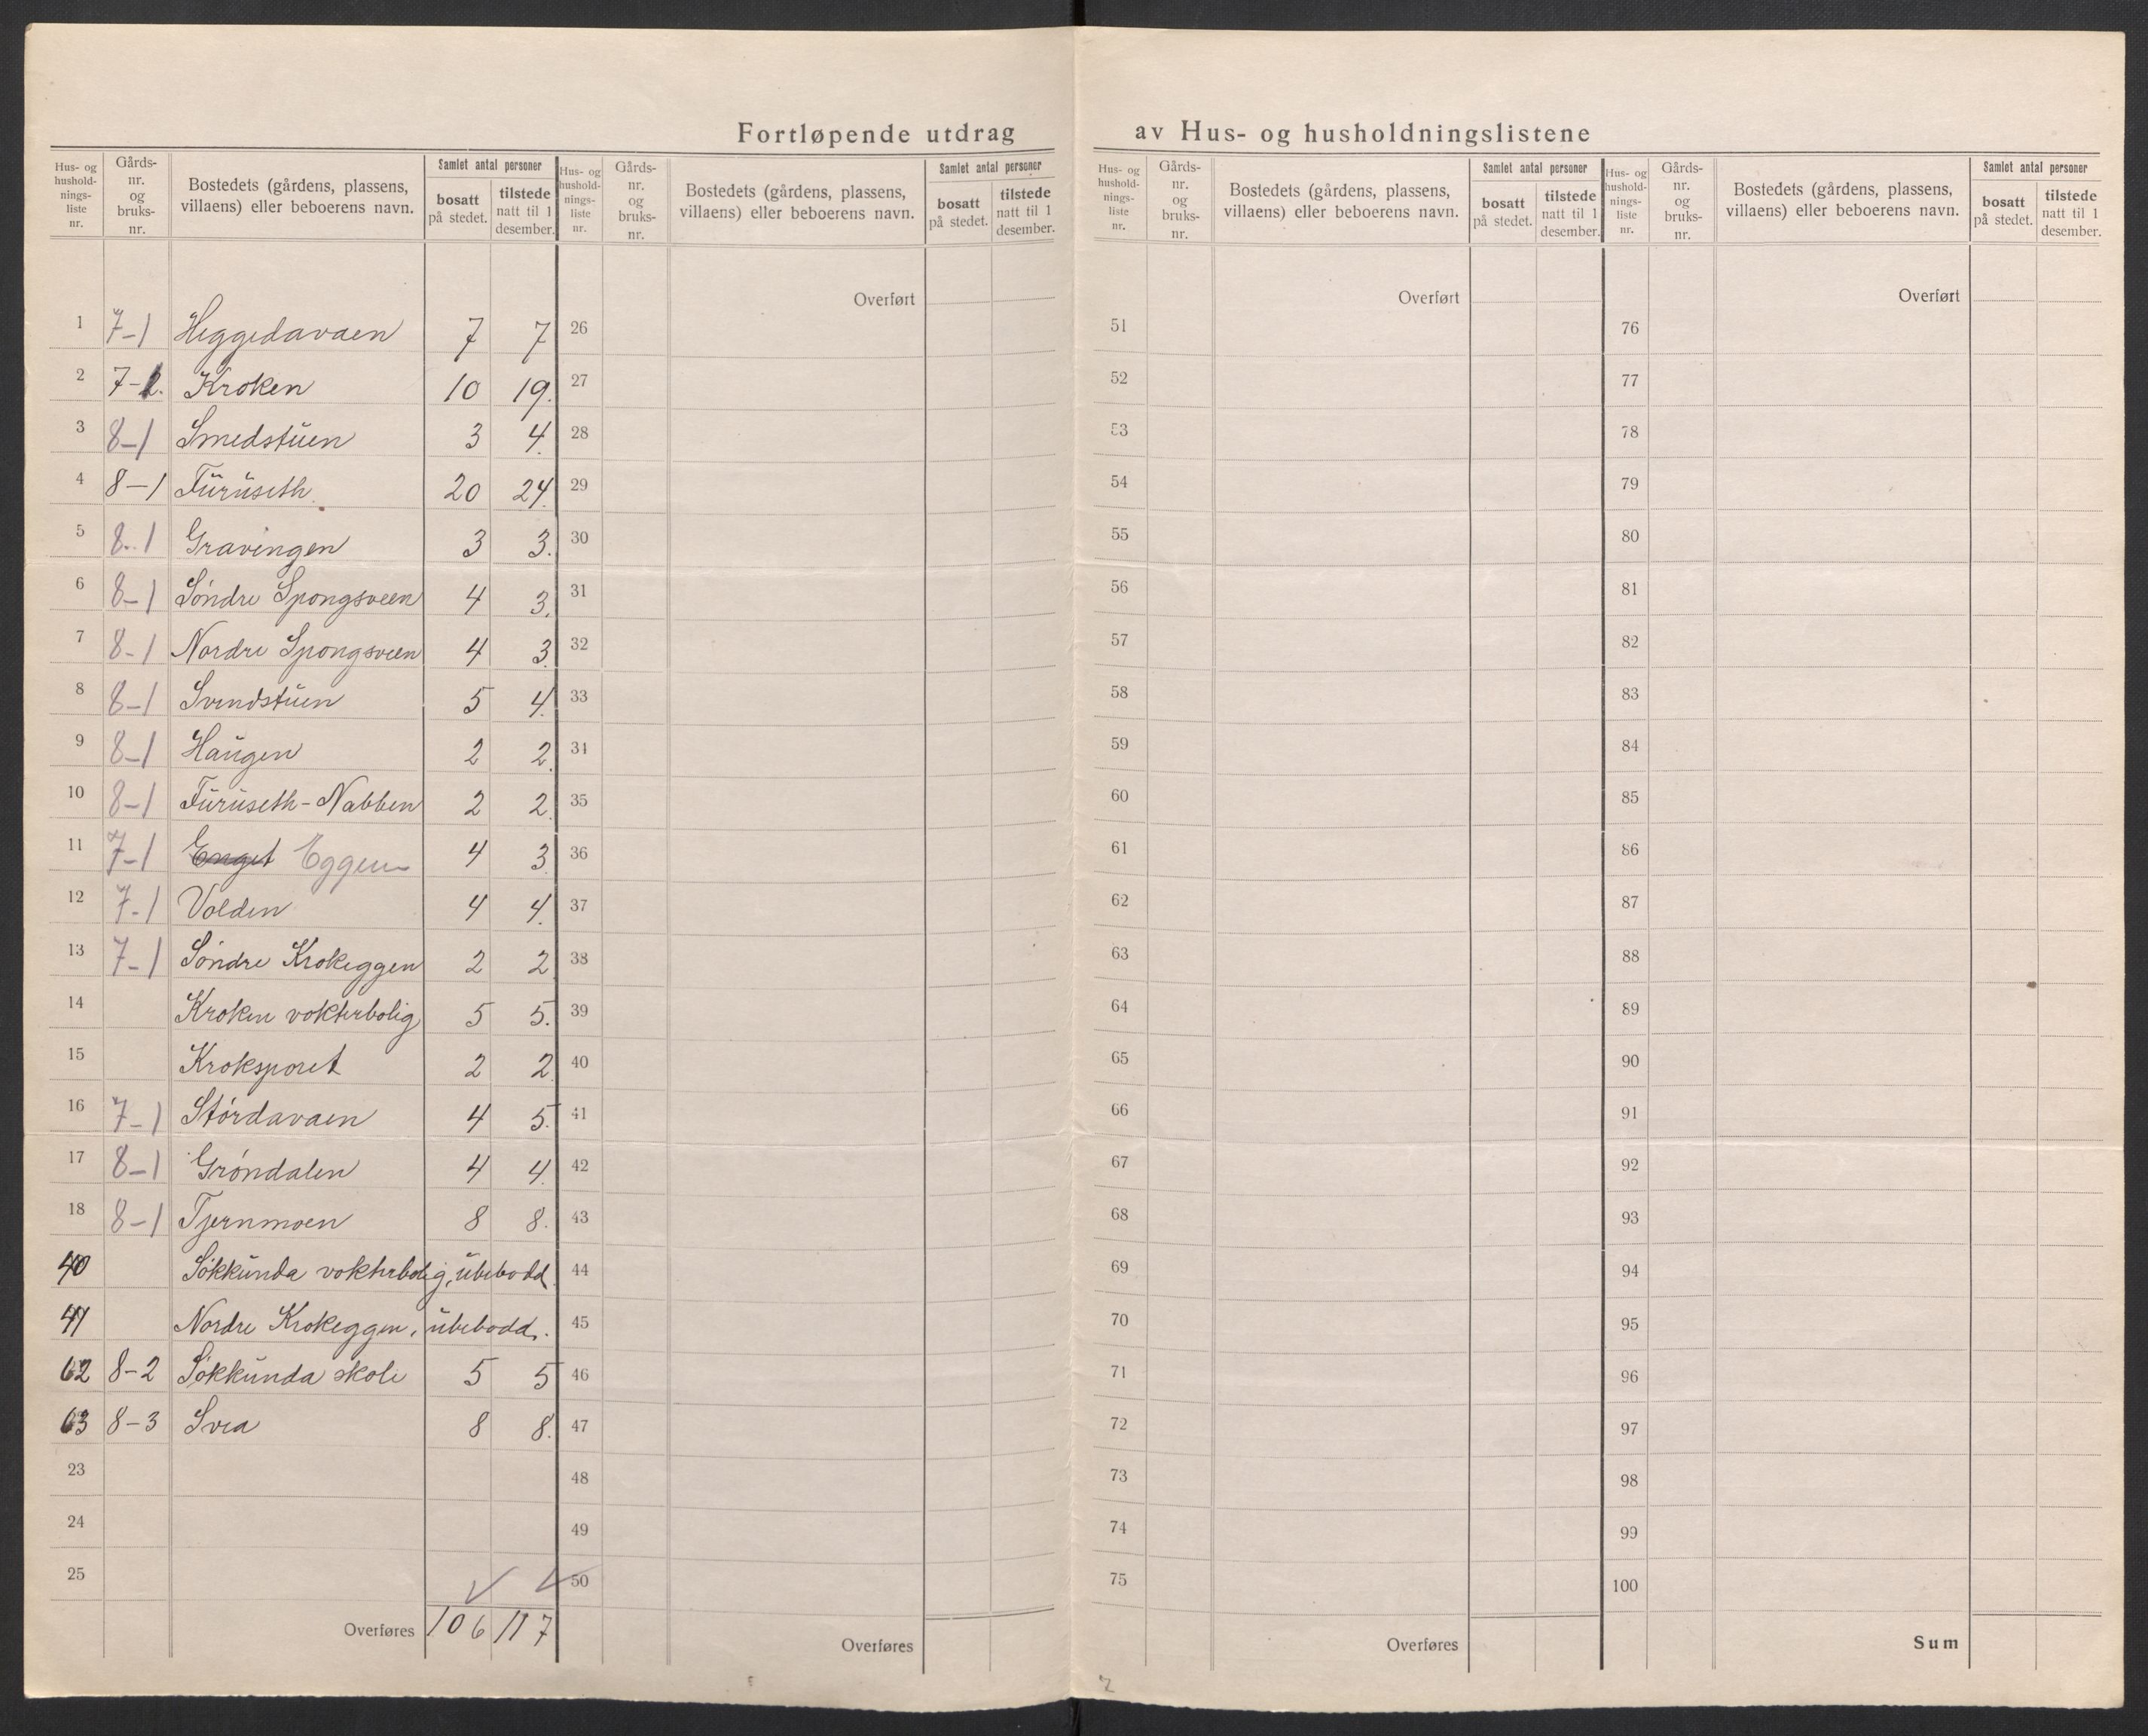 Fortløpende utdrag av Hus- og husholdningslistene
Hus- og hushold-nings-liste nr. | Gårds-nr. og bruks-nr. | Bostedets (gårdens, plassens, villaens) eller beboerens navn. | Samlet antal personer | bosatt på stedet. | tilstede natt til 1 desember.
1 7-1 Heggedavaen 7 7
2 7-2. Kroken 10 19.
3 8-1 Smedstuen 3 4.
4 8-1 Furuseth 20 24.
5 8-1 Gravingen 3 3.
6 8-1 Søndre Spongsveen 4 3.
7 8-1 Nordre Spongsveen 4 3.
8 8-1 Svendstuen 5 4.
9 8-1 Haugen 2 2.
10 8-1 Furuseth-Nabben 2 2.
11 7-1 Enget Eggen 4 3.
12 7-1 Volden 4 4.
13 7-1 Søndre Krokeggen 2 2
14 Kroken vokterbolig 5 5.
15 Kroksporet 2 2.
16 7-1 Stórdavaen 4 5.
17 8-1 Gróndalen 4 4.
18 8-1 Tjernmoen 8 8.
40 Sokkunda vokterbolig, ubebodd
41 Nordre Krokeggen, ubebodd.
62 8-2 Sokkunda skole 5 5
63 8-3 Svea 8 8.
23
24
25
Overføres 106 117
Hus- og hushold-nings-liste nr. | Gårds-nr. og bruks-nr. | Bostedets (gårdens, plassens, villaens) eller beboerens navn. | Samlet antal personer | bosatt på stedet. | tilstede natt til 1 desember.
Overført
26
27
28
29
30
31
32
33
34
35
36
37
38
39
40
41
42
43
44
45
46
47
48
49
50
Overføres
Hus- og hushold-nings-liste nr. | Gårds-nr. og bruks-nr. | Bostedets (gårdens, plassens, villaens) eller beboerens navn. | Samlet antal personer | bosatt på stedet. | tilstede natt til 1 desember.
Overført
51
52
53
54
55
56
57
58
59
60
61
62
63
64
65
66
67
68
69
70
71
72
73
74
75
Overføres
Hus- og hushold-nings-liste nr. | Gårds-nr. og bruks-nr. | Bostedets (gårdens, plassens, villaens) eller beboerens navn. | Samlet antal personer | bosatt på stedet. | tilstede natt til 1 desember.
Overført
76
77
78
79
80
81
82
83
84
85
86
87
88
89
90
91
92
93
94
95
96
97
98
99
100
Sum
2